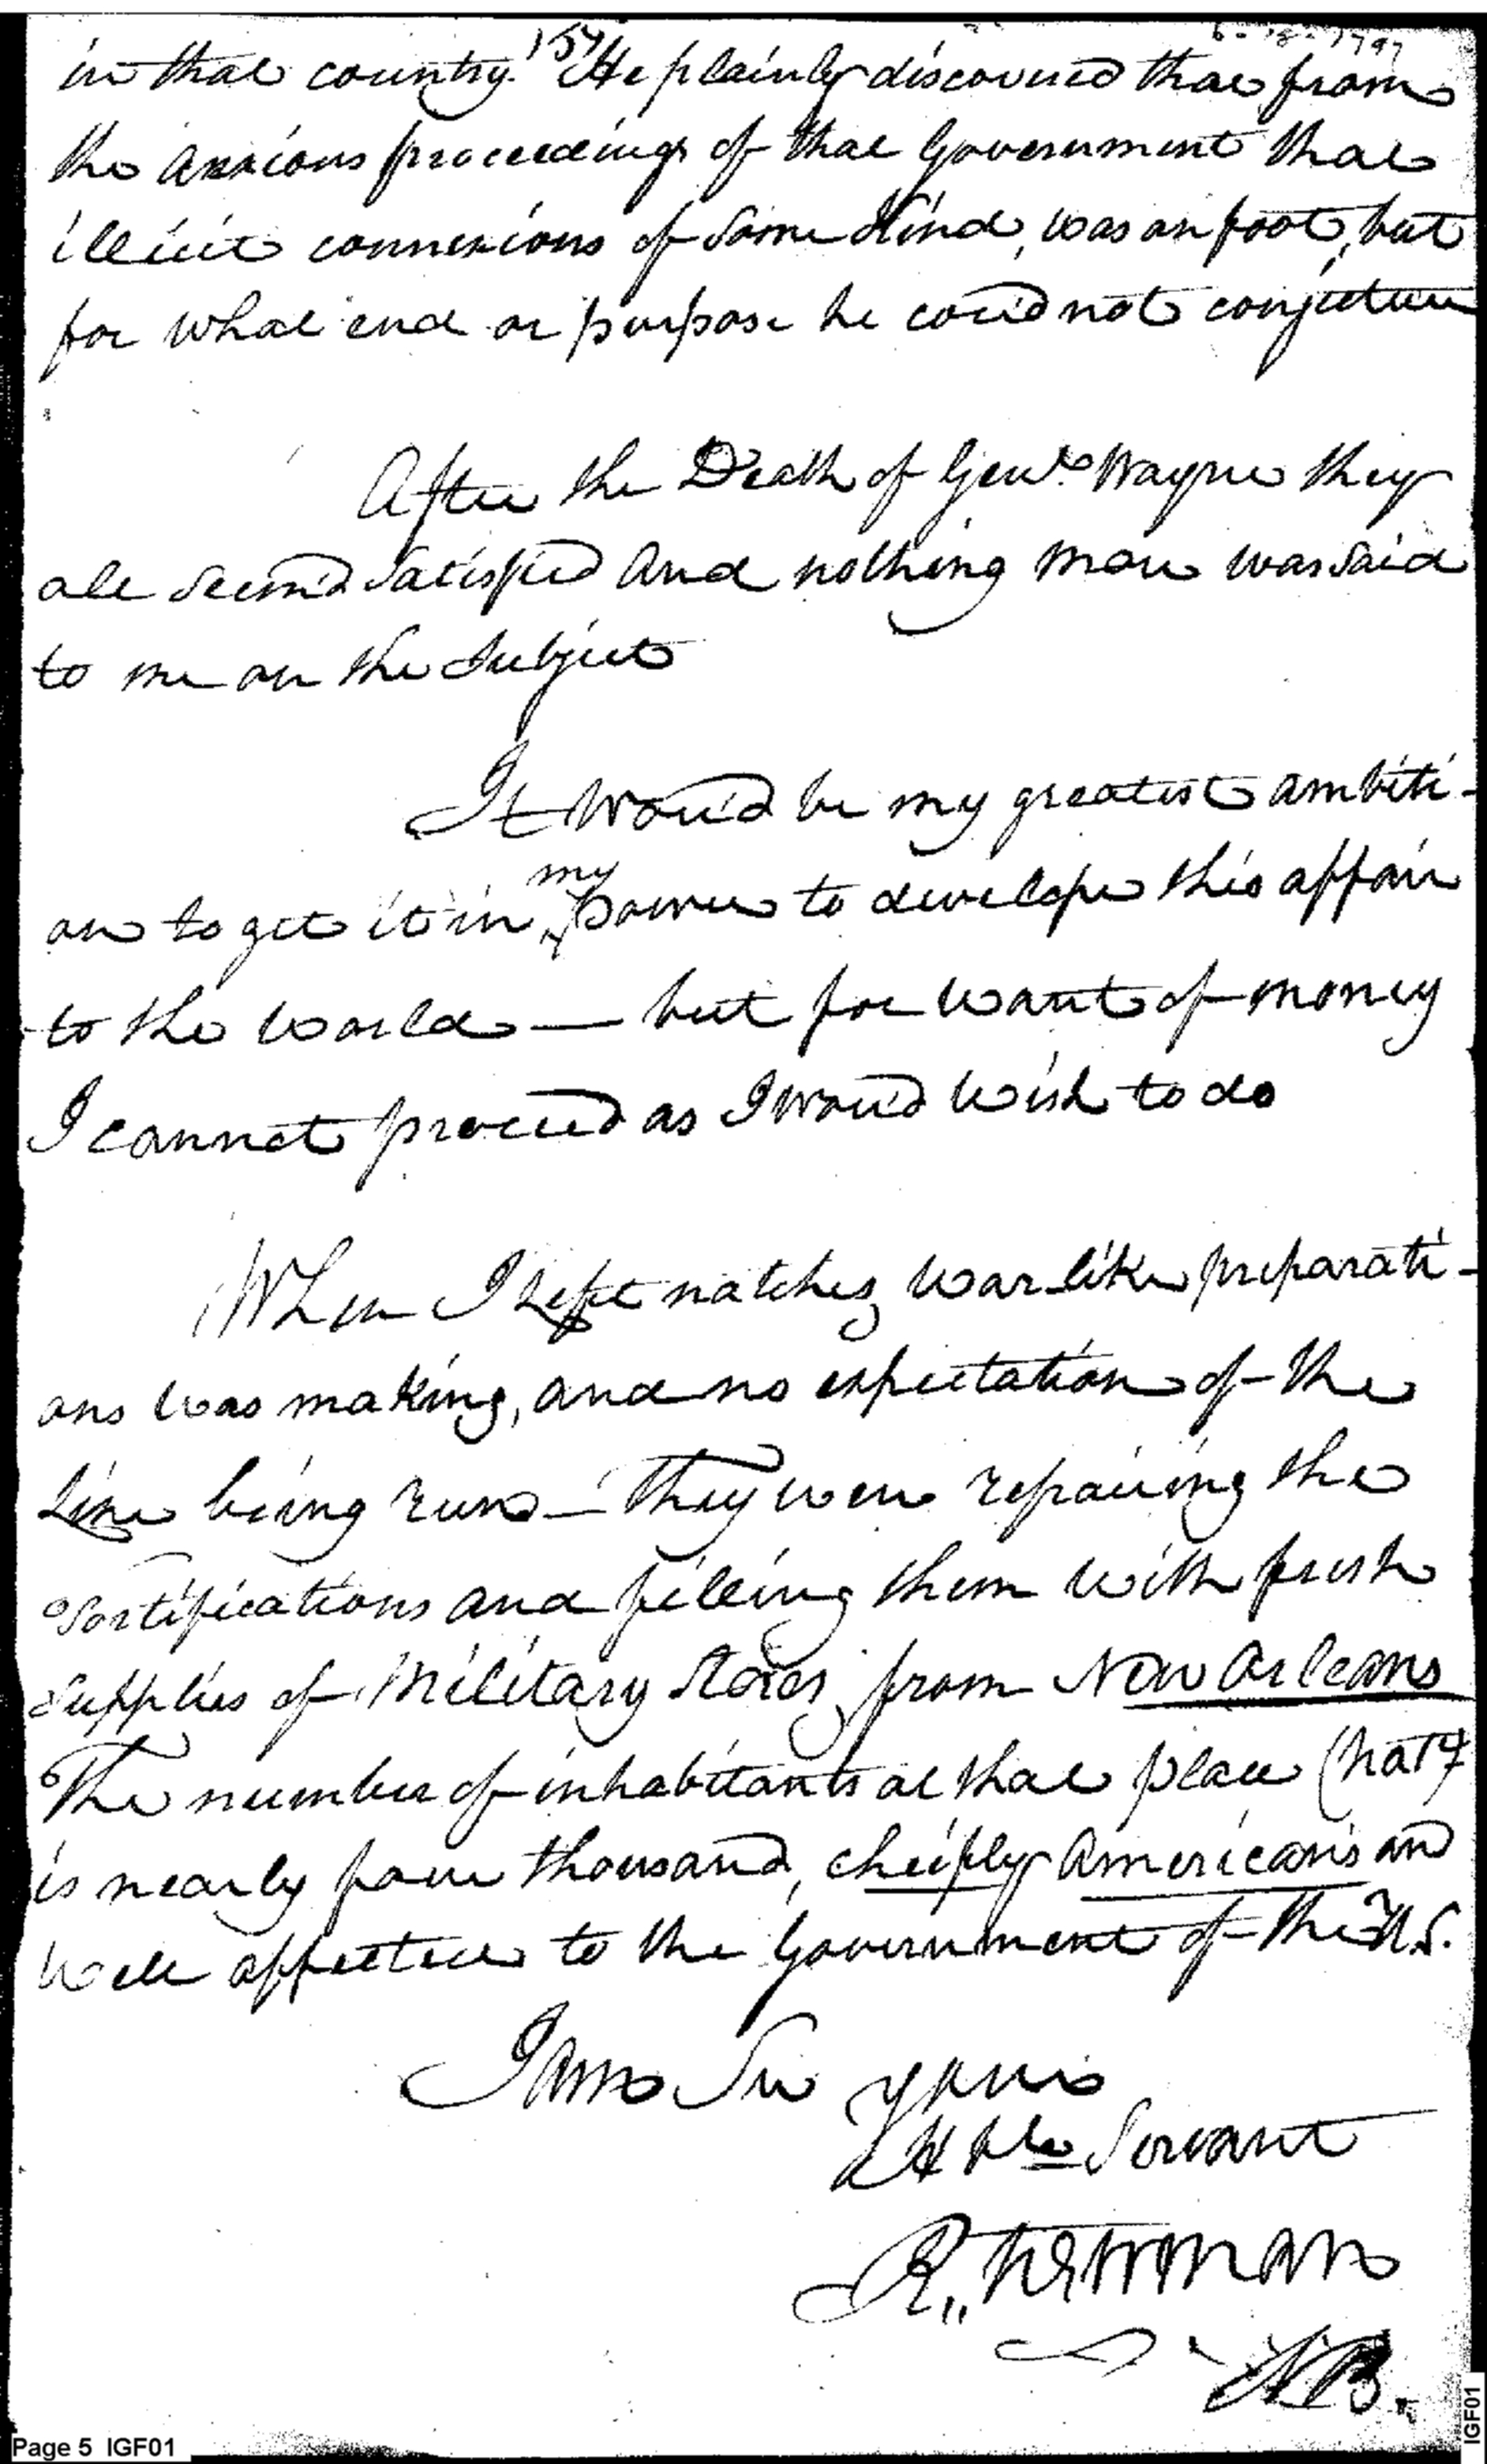 154
6-18-1797
in that country. He plainly discovered that from
the anxious proceedings of that Government that
illicit connexions of some kind, was on foot, but
for what end or purpose he cou'd not conjecture
After the Death of Genl. Wayne they
all seem'd satisfied and nothing more was said
to me on the Subject
It wou'd be my greatest ambiti-
on to get it in my power to develope this affair
to the world — but for want of money
I cannot proceed as I wou'd wish to do
When I left natchez warlike preparati-
ons was making, and no expectation of the
Line being run — They were repairing the
fortifications and filling them with fresh
supplies of Military stores from New Orleans
The number of inhabitants at that place (hat
is nearly four thousand, cheifly Americans and
well affected to the Government of the U.S.
I am Sir yours
Hble Servant
R,, Newman
NB.
Page 5 IGF01
IGF01